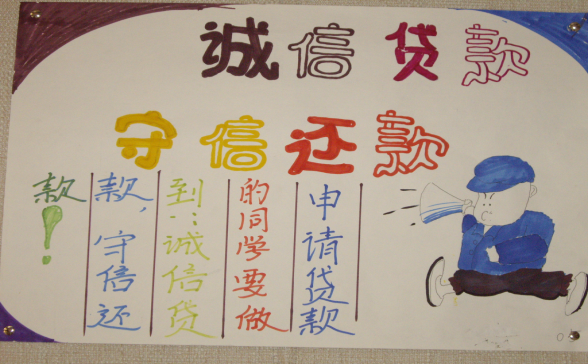 诚信贷款
守信还款
申请贷款
的同学要做
到:诚信贷
款,守信还
款!